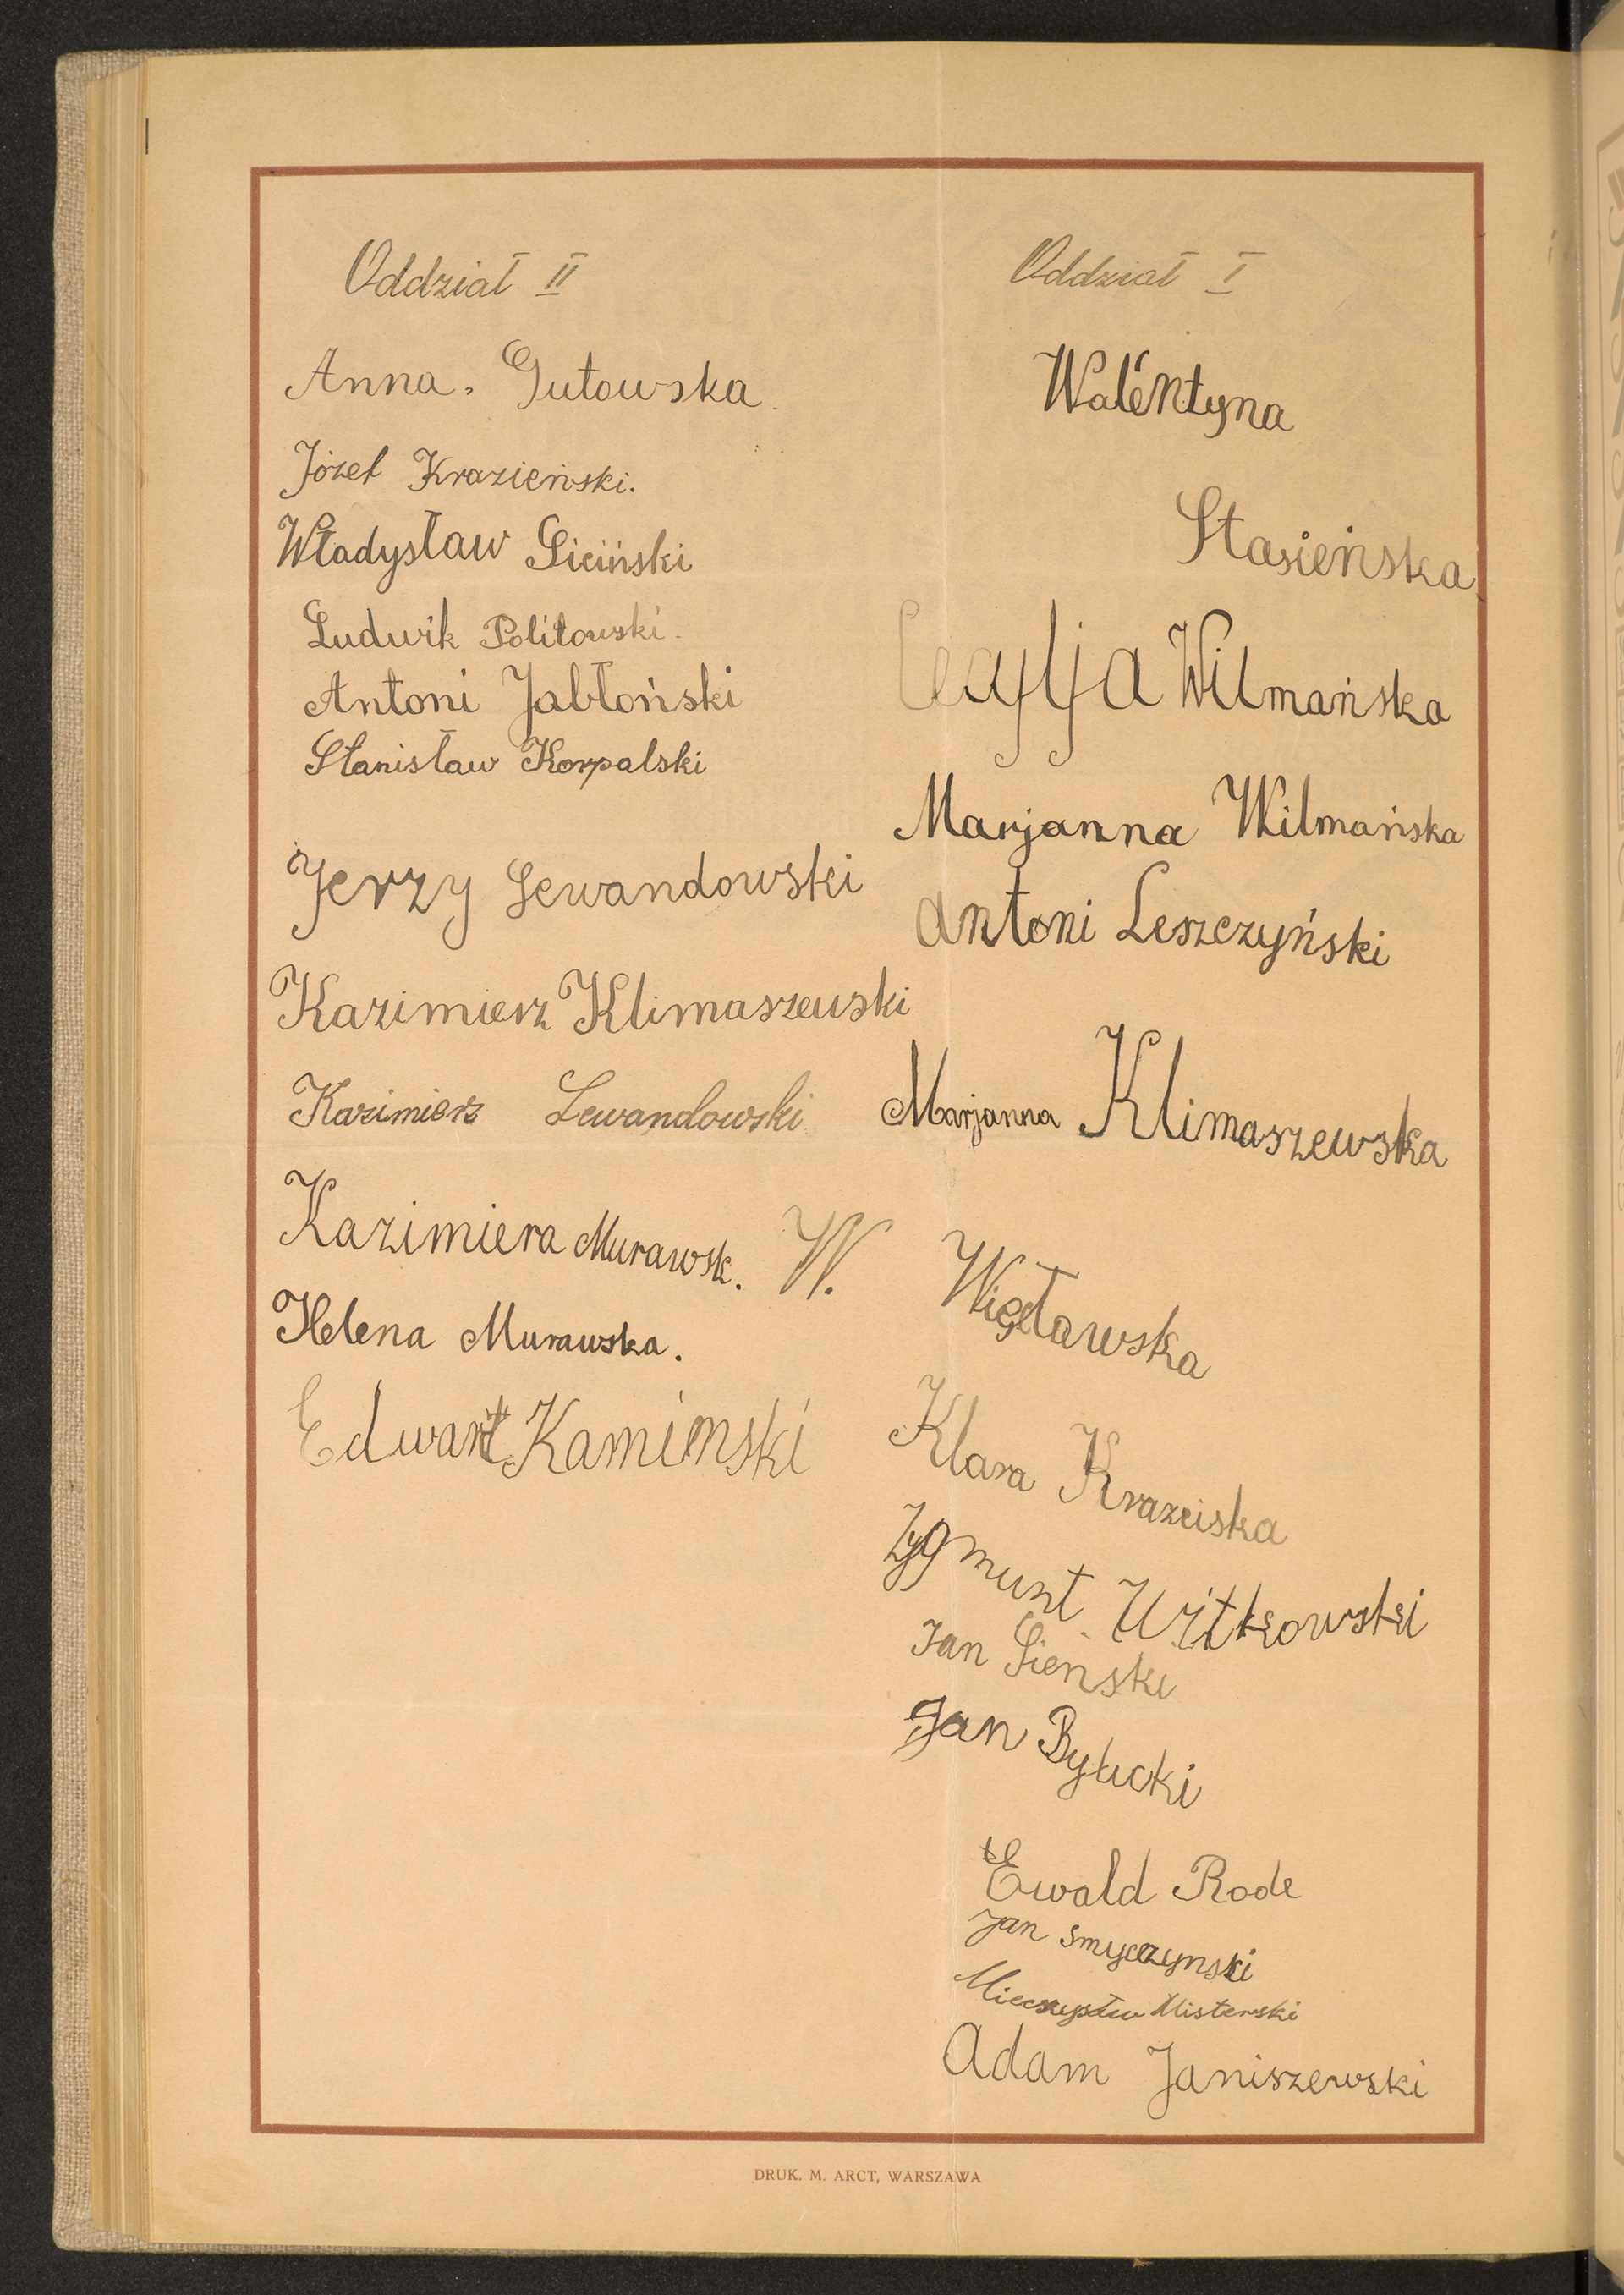 Oddział II
Anna. Gutowska.
Józef Krazieński.
Władysław Siciński
Ludwik Politowski.
Antoni Jabłoński
Stanisław Korpalski
Jerzy Lewandowski
Kazimierz Klimaszewski
Kazimierz Lewandowski
Kazimiera Murawsk.
Helena Murawska.
Edwart Kamimski
Oddział I
Walentyna
Stasieńska
Wilmańska
Marjanna Wilmańska
Antoni Leszczyński
Marjanna Klimaszewska
W. Więcławska
Klara Krazeiska
Zygmunt Witkowski
Jan Sienski
Jan
Ewald Rode
Jan Smyczynski
Mieczysław Misterski
Adam Janiszewski
DRUK. M. ARCT, WARSZAWA